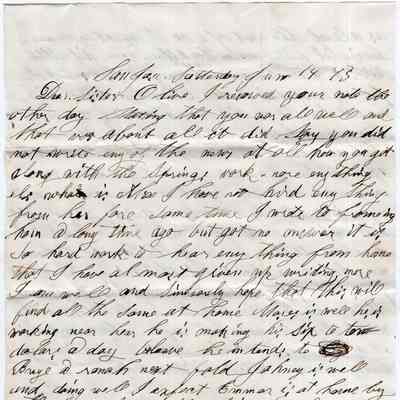 San Jose Satterday Jun 14 73
Dear Sister Olive I received your note the
other day stateing that you war all well and
that was about all it did Say you did
not write eny of the news at all how you got
along with the Springs work nore eny thing
els whare is Alse I have not hird eny thing
from her fore some time I wrote to
hom a long time ago but got no answer it is
So hard work to hear eny thing from home
that I have al most given up writing more
I am well and Sincearly hope that this will
find all the Same at home is well he is
working near her he is making his Six
dolars a day beleave he intends to
Buye a ranch next fold Johney is well
and doing well I expect Emmar is at home by